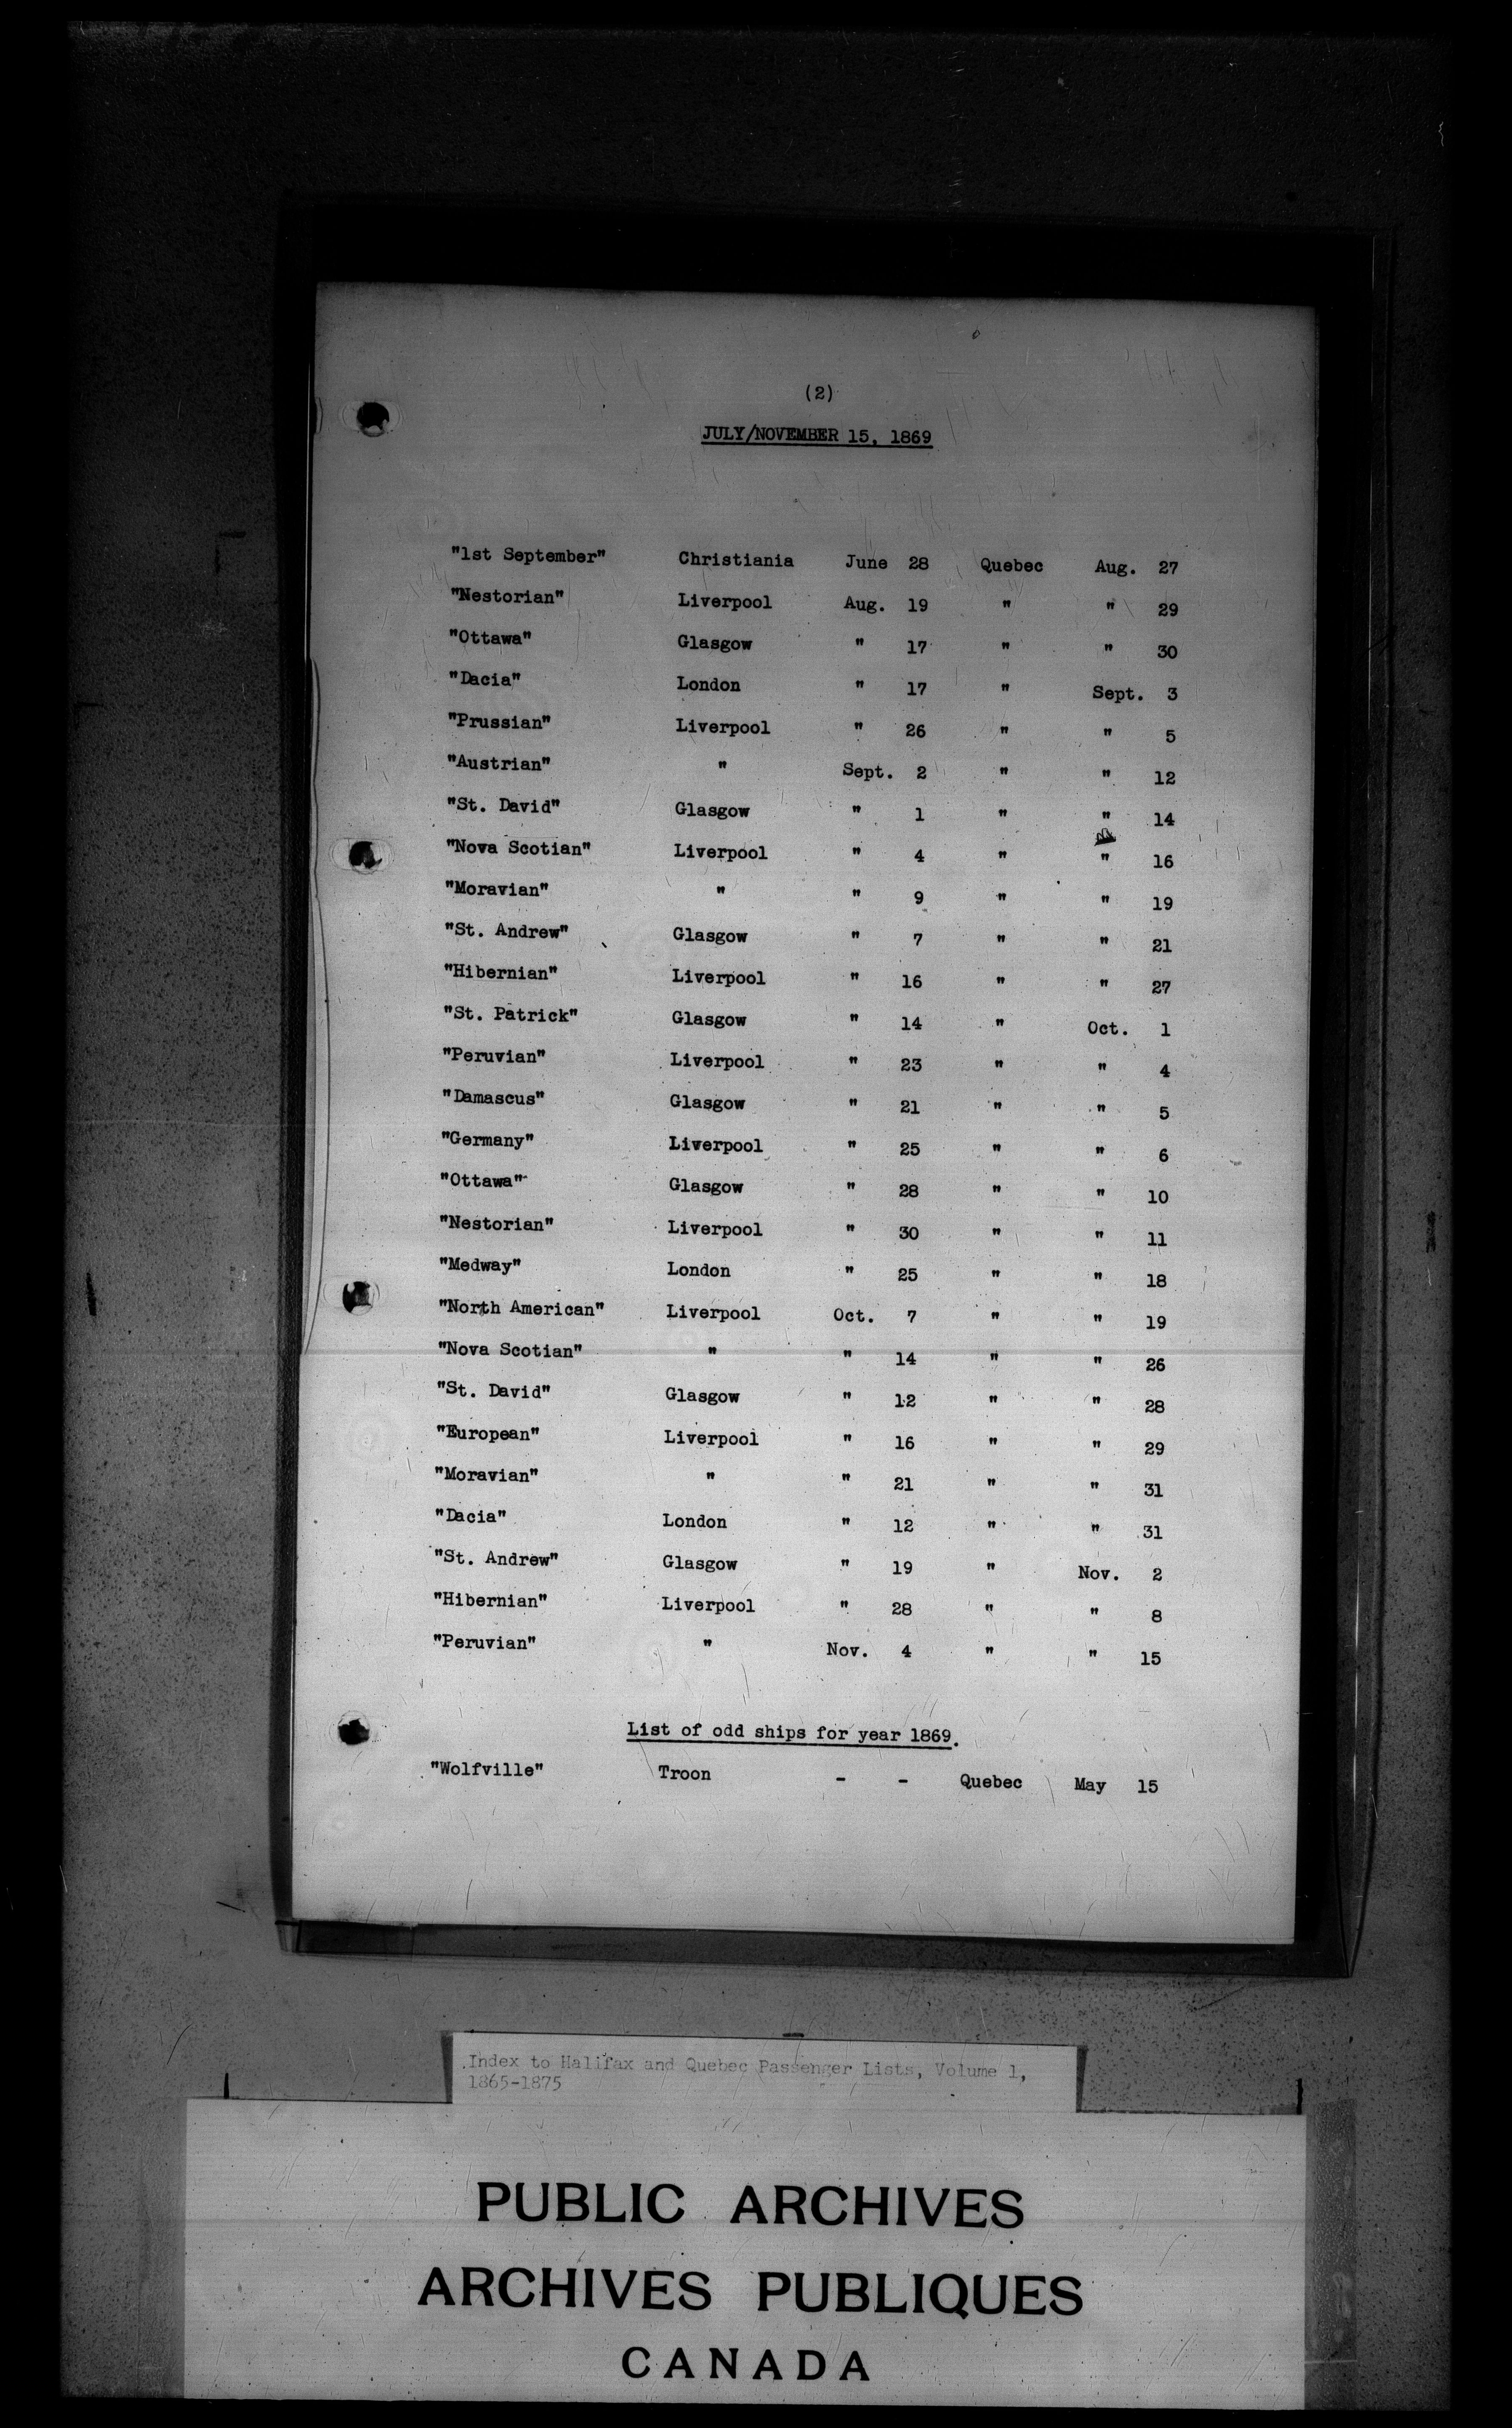 (2)
JULY/NOVEMBER 15, 1869
"1st September" Christiania June 28 Quebec Aug. 27
"Nestorian" Liverpool Aug. 19 " " 29
"Ottawa" Glasgow " 17 " " 30
"Dacia" London " 17 " Sept. 3
"Prussian" Liverpool " 26 " " 5
"Austrian" " Sept. 2 " " 12
"St. David" Glasgow " 1 " " 14
"Nova Scotian" Liverpool " 4 " " 16
"Moravian" " " 9 " " 19
"St. Andrew" Glasgow " 7 " " 21
"Hibernian" Liverpool " 16 " " 27
"St. Patrick" Glasgow " 14 " Oct. 1
"Peruvian" Liverpool " 23 " " 4
"Damascus" Glasgow " 21 " " 5
"Germany" Liverpool " 25 " " 6
"Ottawa" Glasgow " 28 " " 10
"Nestorian" Liverpool " 30 " " 11
"Medway" London " 25 " " 18
"North American" Liverpool Oct. 7 " " 19
"Nova Scotian" " " 14 " " 26
"St. David" Glasgow " 12 " " 28
"European" Liverpool " 16 " " 29
"Moravian" " " 21 " " 31
"Dacia" London " 12 " " 31
"St. Andrew" Glasgow " 19 " Nov. 2
"Hibernian" Liverpool " 28 " " 8
"Peruvian" " Nov. 4 " " 15
List of odd ships for year 1869.
"Wolfville" Troon - - Quebec May 15
Index to Halifax and Quebec Passenger Lists, Volume 1,
1865-1875
PUBLIC ARCHIVES
ARCHIVES PUBLIQUES
CANADA